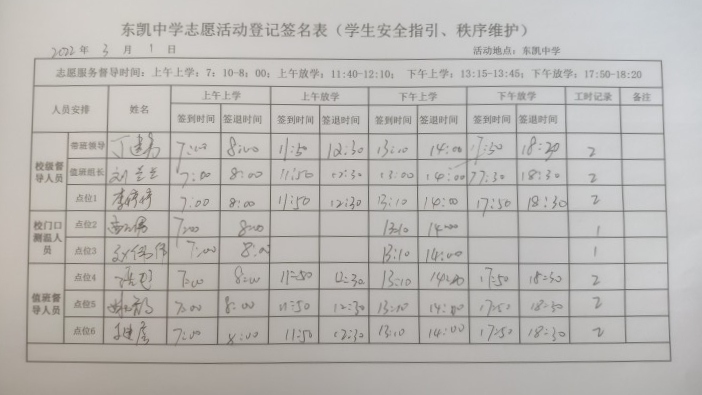 东凯中学志愿活动登记签名表（学生安全指引、秩序维护）
2022年 3 月 1 日 活动地点：东凯中学
志愿服务督导时间：上午上学：7：10-8：00；上午放学：11:40-12:10； 下午上学：13:15-13:45；下午放学：17:50-18:20
人员安排 姓名 上午上学 上午放学 下午上学 下午放学 工时记录 备注
签到时间 签退时间 签到时间 签退时间 签到时间 签退时间 签到时间 签退时间
校级督导人员
带班领导 7:00 8:00 11:50 12:30 13:10 14:00 17:50 18:30 2
值班组长 7:00 8:00 11:50 12:30 13:00 14:00 17:30 18:30 2
点位1 7:00 8:00 11:50 12:30 13:10 14:00 17:50 18:30 2
校门口测温人员
点位2 7:00 8:00 13:10 14:00 1
点位3 7:00 8:00 13:10 14:00 1
值班督导人员
点位4 7:00 8:00 11:50 12:30 13:10 14:00 17:50 18:30 2
点位5 7:00 8:00 11:50 12:30 13:10 14:00 17:50 18:30 2
点位6 7:00 8:00 11:50 12:30 13:10 14:00 17:50 18:30 2